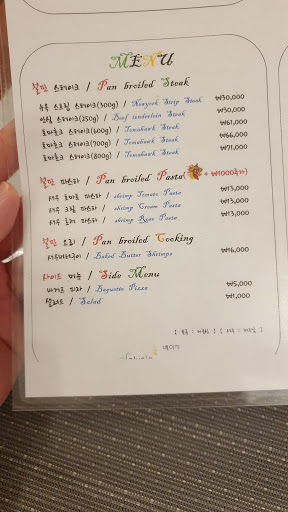 MENU
철판 스테이크 / Pan broiled Steak
뉴욕 스트립 스테이크(300g) / Newyork Strip Steak ₩30,000
안심 스테이크(250g) / Beef tenderloin Steak ₩30,000
토마호크 스테이크(600g) / Tomahawk Steak ₩61,000
토마호크 스테이크(700g) / Tomahawk Steak ₩66,000
토마호크 스테이크(800g) / Tomahawk Steak ₩71,000
철판 파스타 / Pan broiled Pasta( + ₩1000추가)
새우 토마토 파스타 / shrimp Tomato Pasta ₩13,000
새우 크림 파스타 / shrimp Cream Pasta ₩13,000
새우 로제 파스타 / shrimp Rose Pasta ₩13,000
철판 요리 / Pan broiled Cooking
새우버터구이 / Baked Butter Shrimps ₩16,000
사이드 메뉴 / Side Menu
바게트 피자 / Baguette Pizza ₩5,000
샐러드 / Salad ₩1,000